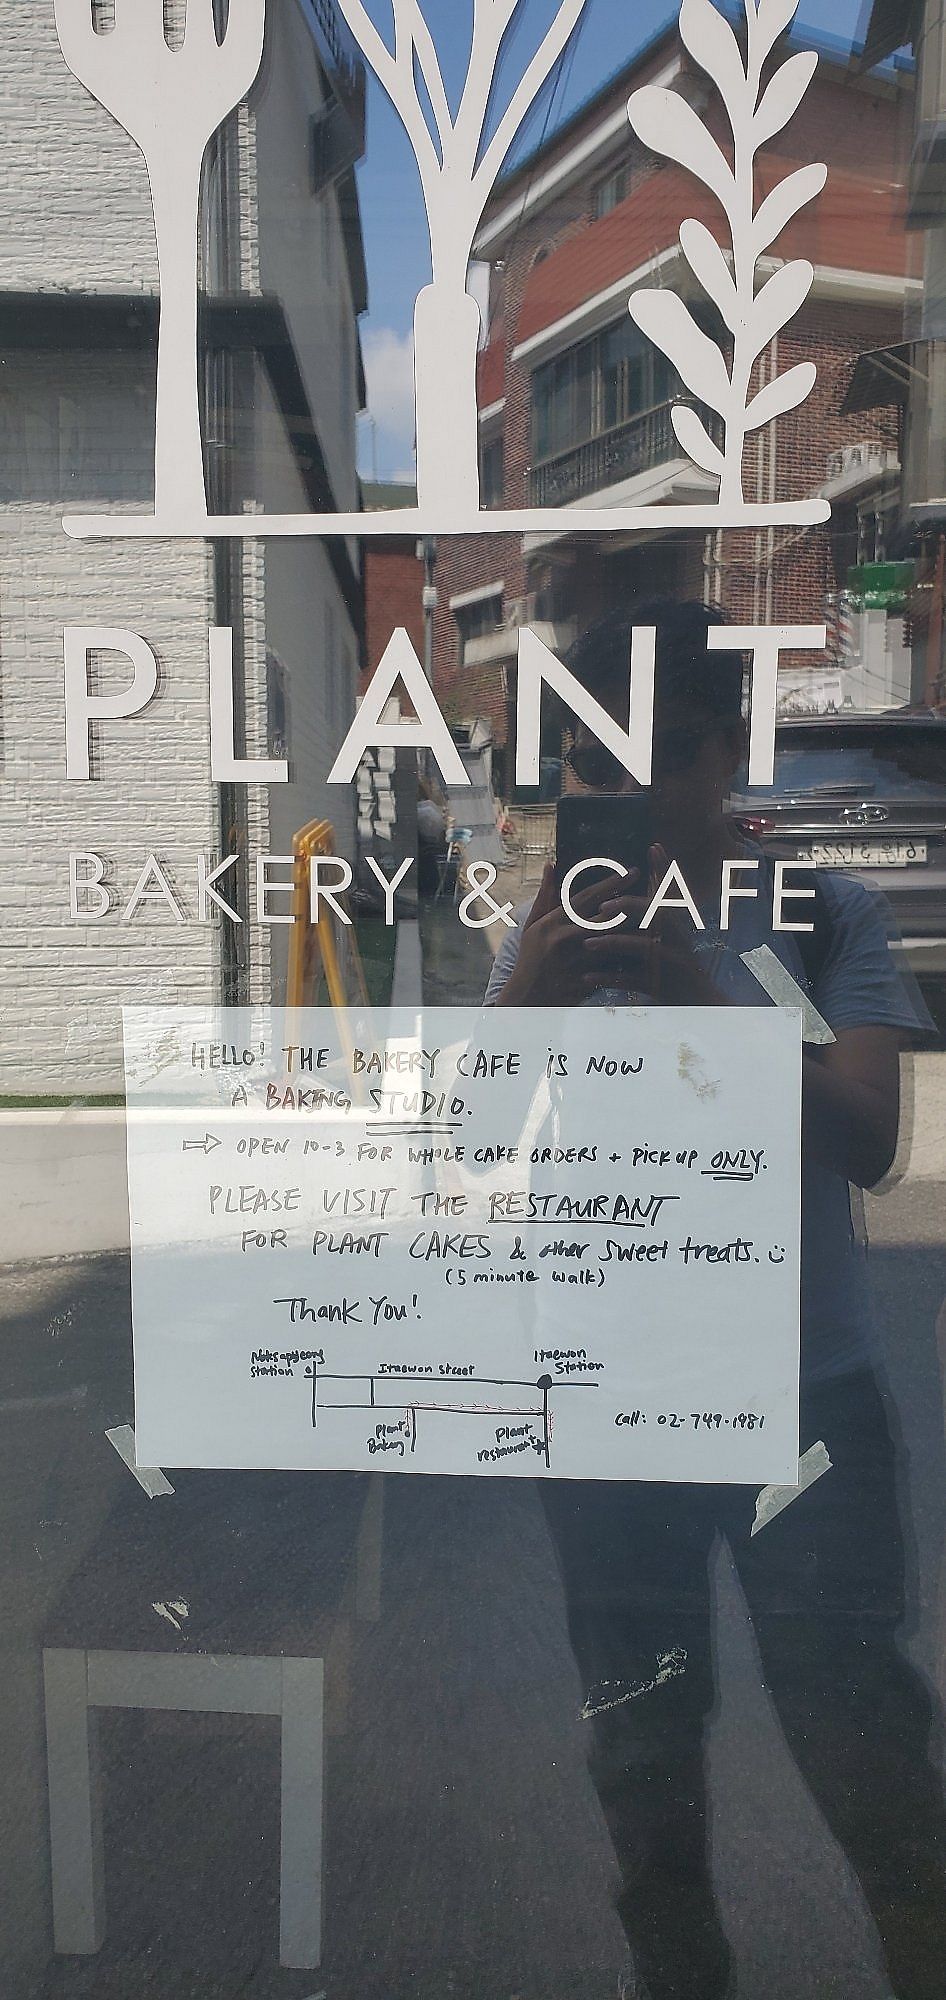 PLANT
BAKERY & CAFE
HELLO! THE BAKERY CAFE iS NOW
A BAKING STUDIO.
⇨ OPEN 10-3 FOR WHOLE CAKE ORDERS + PiCK UP ONLY.
PLEASE VISIT THE RESTAURANT
FOR PLANT CAKES & other sweet treats. :)
(5 minute walk)
Thank You!
Noksapyeong
station
Itaewon street
Itaewon
Station
Plant
Bakery
Plant
restaurant
call: 02-749-1981